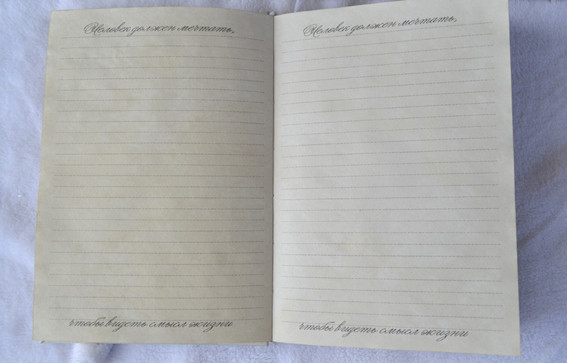 Человек должен мечтать,
чтобы видеть смысл жизни
Человек должен мечтать,
чтобы видеть смысл жизни